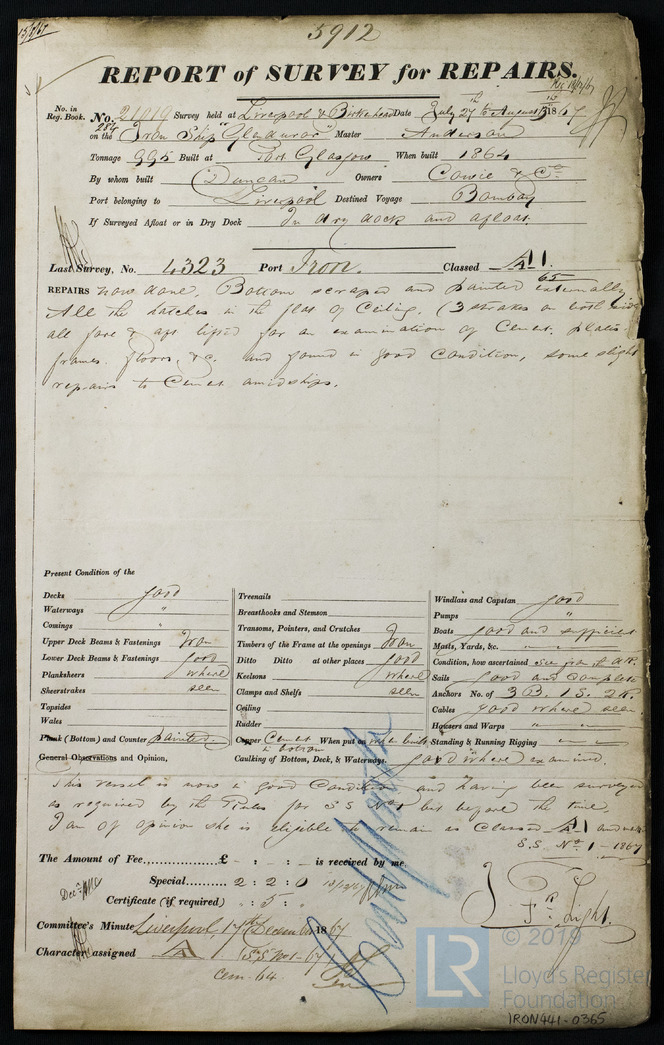 5912
REPORT of SURVEY for REPAIRS.
No. in Reg. Book. No. 21019 Survey held at Liverpool & Birkenhead Date July 27th to August 1867
on the Iron Ship "Glendurar" Master Anderson
Tonnage 995 Built at Port Glasgow When built 1864
By whom built Duncan Owners Cowie & Co.
Port belonging to Liverpool Destined Voyage Bombay
If Surveyed Afloat or in Dry Dock In dry dock and afloat.
Last Survey, No. 4323 Port Iron. Classed A1.
65
REPAIRS now done. Bottom scraped and painted externally
All the hatches in the flat of Ceiling. (3 strakes on both sides
all fore & aft lifted for an examination of Cemet. plates
frames. floors, &c. and found in good condition, some slight
repairs to Cemet amidships.
Present Condition of the
Decks good
Waterways "
Comings "
Upper Deck Beams & Fastenings Iron
Lower Deck Beams & Fastenings good
Planksheers where
Sheerstrakes seen
Topsides
Wales
Plank (Bottom) and Counter painted.
Treenails
Breasthooks and Stemson
Transoms, Pointers, and Crutches
Timbers of the Frame at the openings Iron
Ditto Ditto at other places good
Keelsons where
Clamps and Shelfs seen
Ceiling
Rudder
Copper Cemet in bottom When put on when built
Caulking of Bottom, Deck, & Waterways. good where examined.
Windlass and Capstan good
Pumps "
Boats good and sufficient
Masts, Yards, &c.
Condition, how ascertained
Sails good and complete
Anchors No. of 3 B. 1 S. 2 K.
Cables good where seen
Hawsers and Warps " "
Standing & Running Rigging
General Observations and Opinion,
This vessel is now in good Condition and having been surveyed
as required by the Rules for S S No 1 but before the time.
I am of opinion she is eligible to remain as Classed A1 and
S.S. No. 1 - 1867
The Amount of Fee............£ - : - : - is received by me
Special............2 : 2 : 0
Certificate (if required) : 5 :
Fr. Light.
Committee's Minute Liverpool, 17th December 1867
Character assigned A SS No 1 - 67
Cem. 64
LR
© 2019
Lloyd's Register
Foundation
IRON441-0365